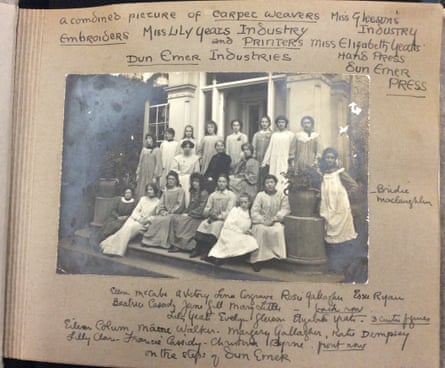 a combined picture of carpet weavers Miss Gleeson's Industry
Embroiders Miss Lily Yeats Industry
and Printers Miss Elizabeth Yeats'
Hand Press
Dun Emer Industries
Dun Emer
PRESS
Bridie
Maclaughlin
McCabe a victory Lena Cosgrave Rosie Gallagher Essie Ryan
Beatrice Cassidy Jane Gill Mary Little - back row
Lily Yeats Evelyn Gleeson Elizabeth Yeats - 3 centre figures
Eileen Colum Máire Walker - Margery Gallagher, Katie Dempsey
Frances Cassidy - Christina Byrne. front row
on the steps of Dun Emer